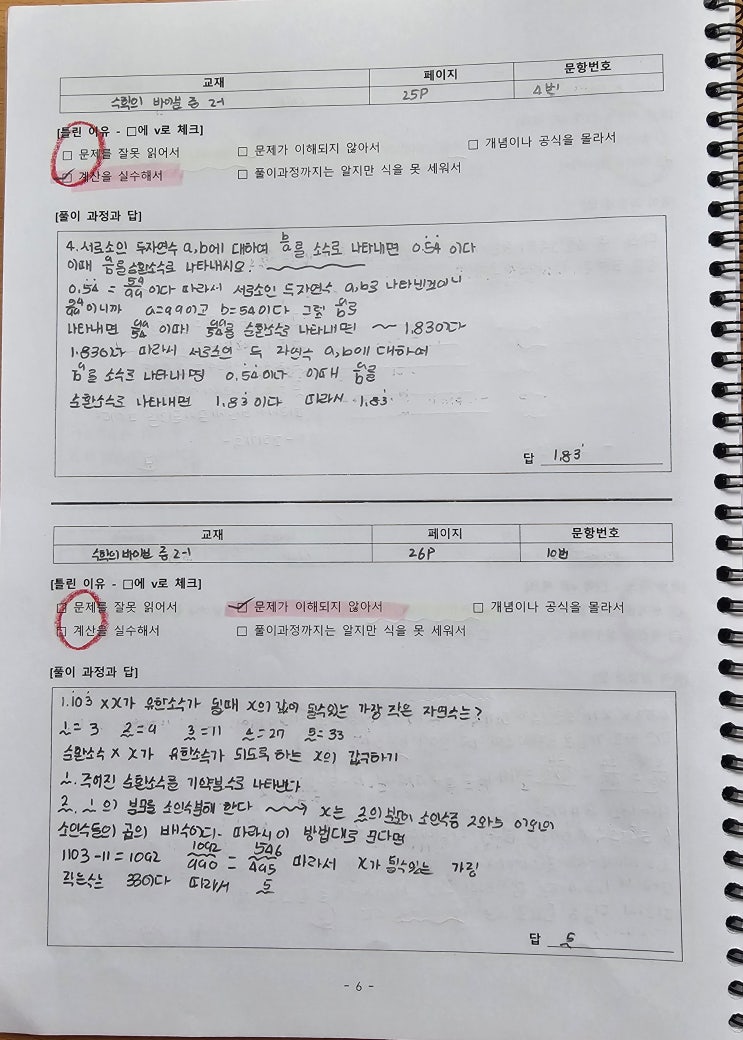 교재 페이지 문항번호
수학의 바이블 중 2-1 25P 4번
[틀린 이유 - □에 v로 체크]
□ 문제를 잘못 읽어서 □ 문제가 이해되지 않아서 □ 개념이나 공식을 몰라서
☑ 계산을 실수해서 □ 풀이과정까지는 알지만 식을 못 세워서
[풀이 과정과 답]
4. 서로소인 두자연수 a, b에 대하여 b/a를 소수로 나타내면 0.5̇4̇ 이다
이때 a/b를 순환소수로 나타내시오.
0.5̇4̇ = 54/99 이다 따라서 서로소인 두자연수 a, b로 나타낸것이니
54/99 이니까 a=99이고 b=54이다 그럼 a/b로
나타내면 99/54 이다 99/54를 순환소수로 나타내면 ~ 1.83이다
1.83이다 따라서 서로소인 두 자연수 a, b에 대하여
를 소수로 나타내면 0.5̇4̇이다 이때 a/b를
순환소수로 나타내면 1.83̇이다 따라서 1.83̇
답 1.83̇
교재 페이지 문항번호
수학의 바이블 중 2-1 26P 10번
[틀린 이유 - □에 v로 체크]
□ 문제를 잘못 읽어서 ☑ 문제가 이해되지 않아서 □ 개념이나 공식을 몰라서
□ 계산을 실수해서 □ 풀이과정까지는 알지만 식을 못 세워서
[풀이 과정과 답]
1.1̇03̇ × x가 유한소수가 될때 x의 값이 될수있는 가장 작은 자연수는?
1=3 2=9 3=11 4=27 5=33
순환소수 × x가 유한소수가 되도록 하는 x의 값구하기
1. 주어진 순환소수를 기약분수로 나타낸다
2. 1의 분모를 소인수분해 한다 x는 2의 분모의 소인수중 2와 5 이외의
소인수들의 곱의 배수이다. 따라서 이 방법대로 푼다면
1103-11=1092 1092/990 = 546/495 따라서 x가 될수있는 가장
작은수는 33이다 따라서 5
답 5
- 6 -